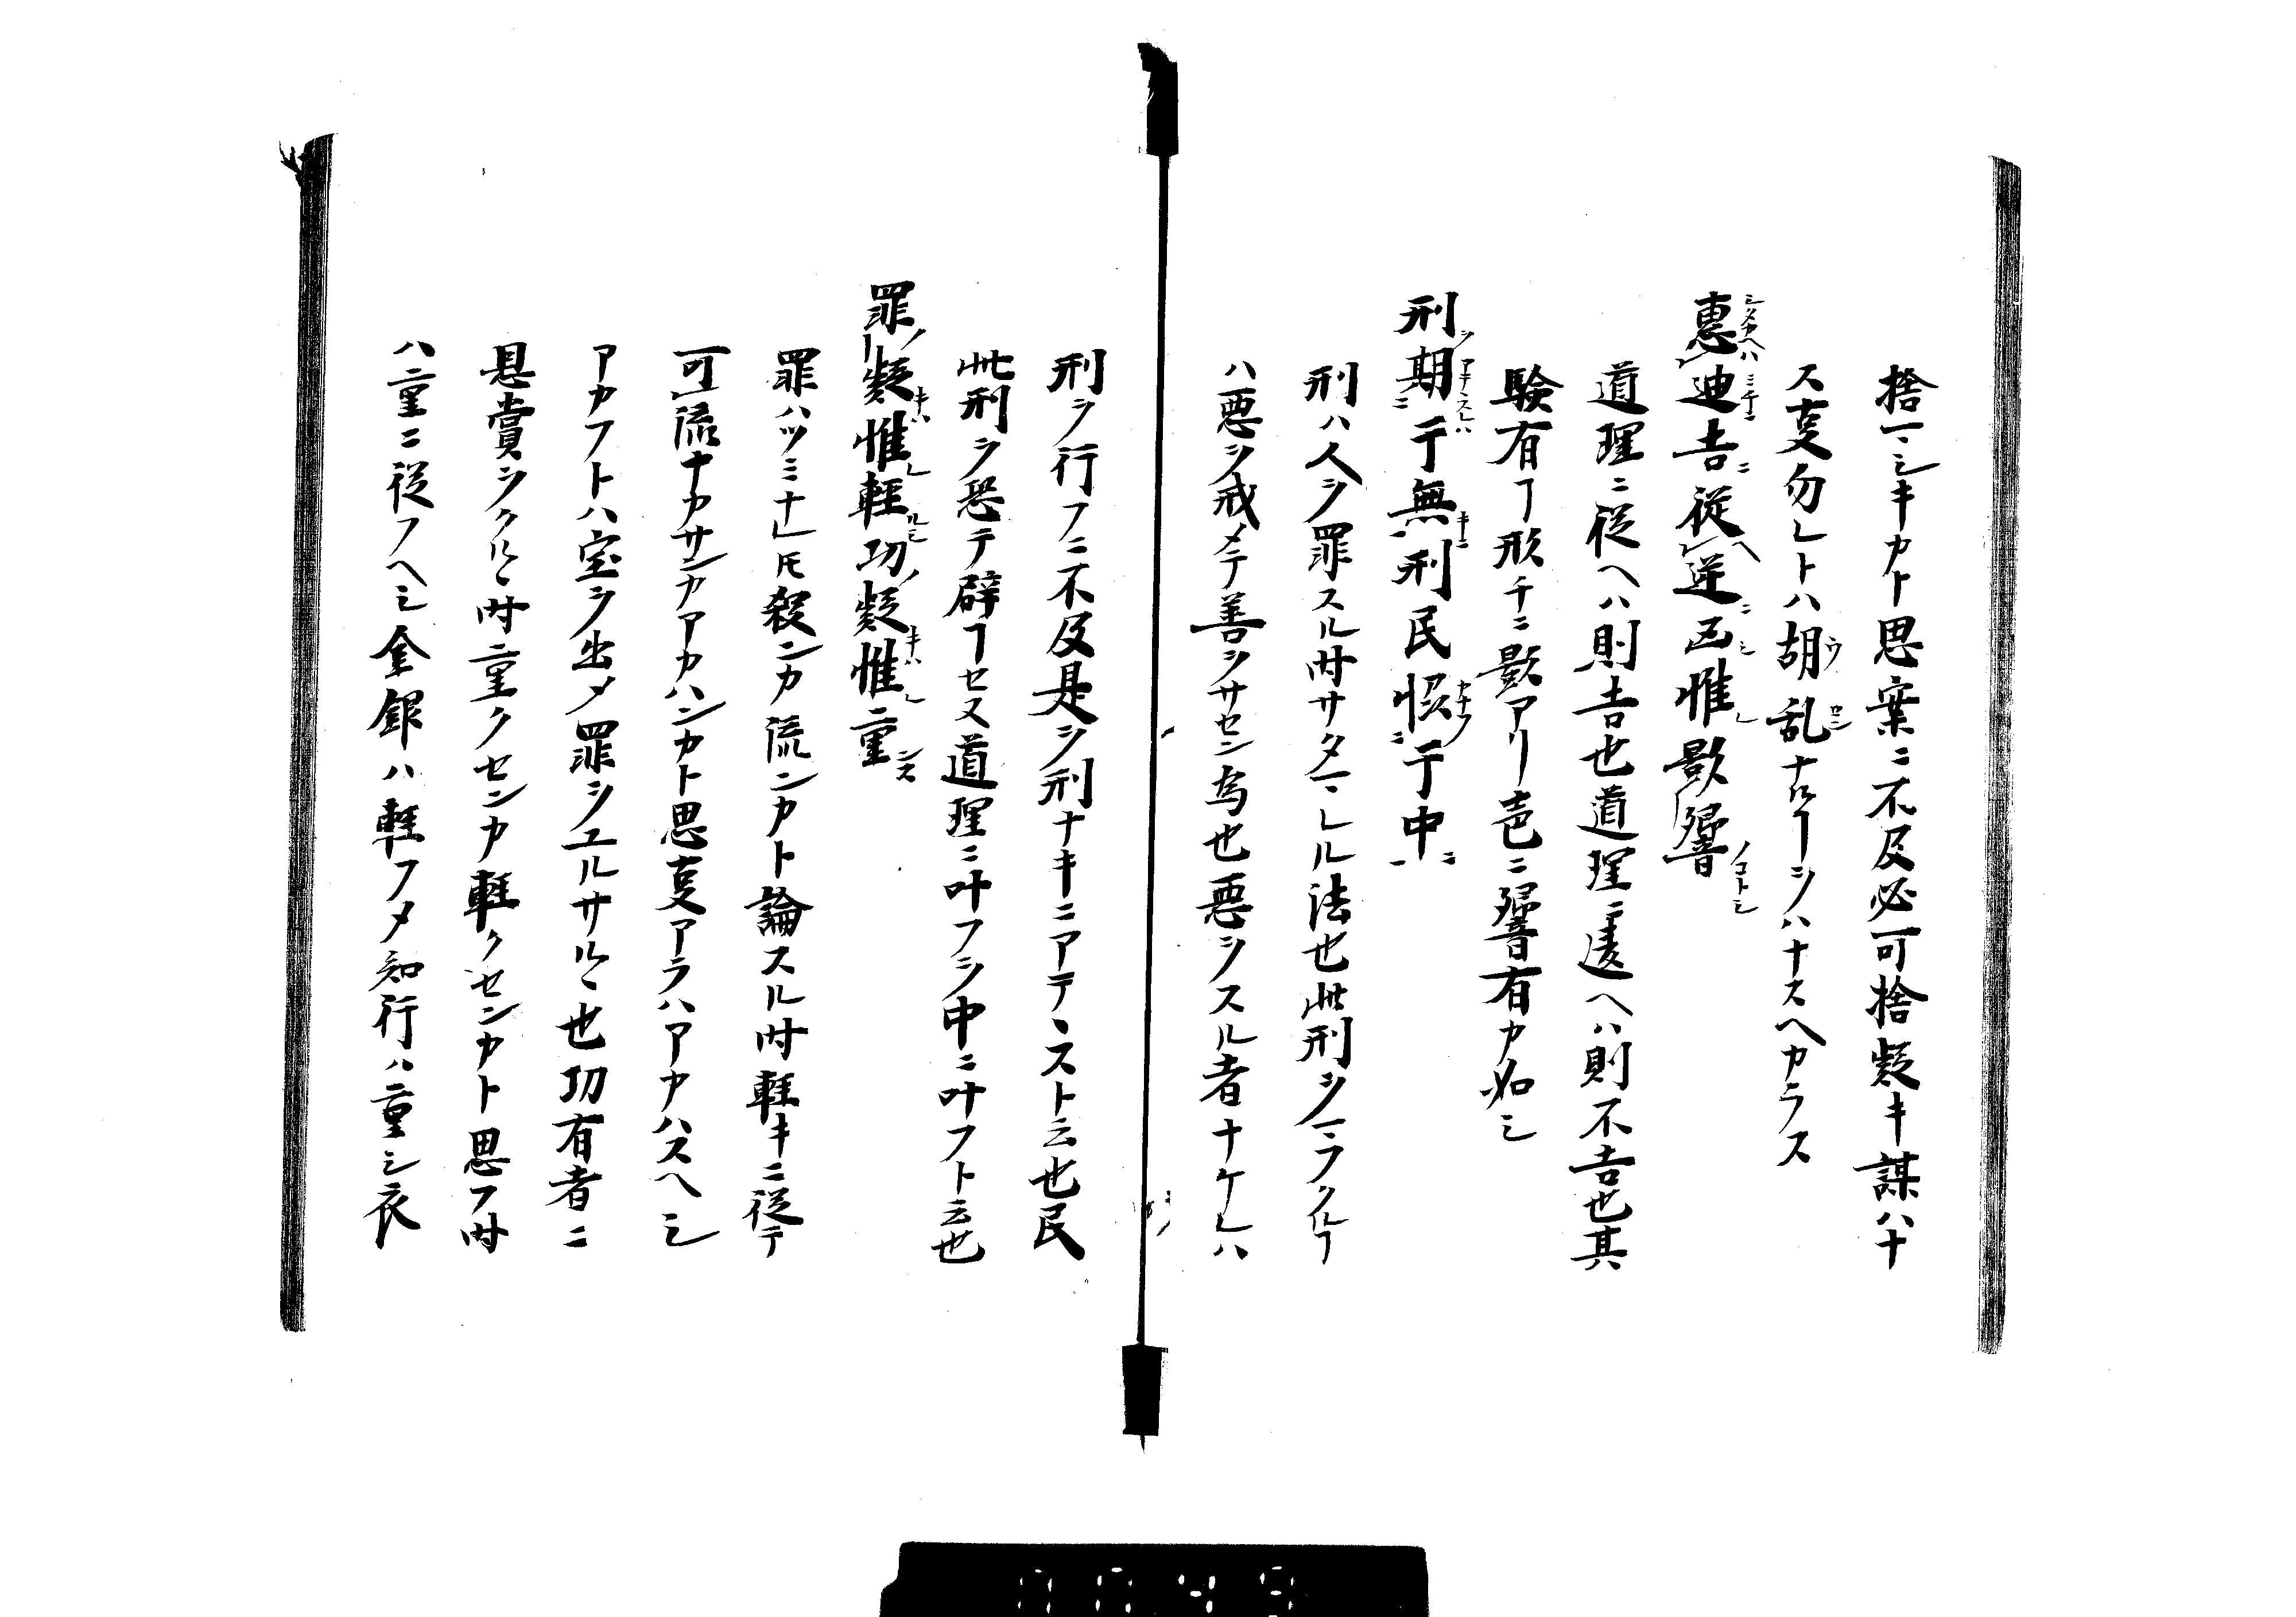 捨マシキカト思案ニ不及必可捨疑キ謀ハナ
ス事勿レトハ胡乱ナルヿヲハナスヘカラス
惠迪吉従逆凶惟影響
道理ニ従ヘハ則吉也道理ニ違ヘハ則不吉也其
験有ヿ形チニ影アリ声ニ響有カ如シ
刑期于無刑民恊于中
刑ハ人ヲ罪スル時サタマレル法也此刑ヲマフクルヿ
ハ悪ヲ戒メテ善ヲサセン為也悪ヲスル者ナケレハ
刑ヲ行フニ不及是ヲ刑ナキニアテヽスト云也民
此刑ヲ恐テ辟ヿセス道理ニ叶フヲ中ニ叶フト云也
罪疑惟軽功疑惟重
罪ハツミナレ𪜈殺ンカ流ンカト論スル時軽キニ従テ
可流ナカサンカアカハンカト思事アラハアカハスヘシ
アカフトハ宝ヲ出メ罪ヲユルサルヽ也功有者ニ
恩賞ヲクルヽ時重クセンカ軽クセンカト思フ時
ハ重ニ従フヘシ金銀ハ軽フメ知行ハ重シ衣